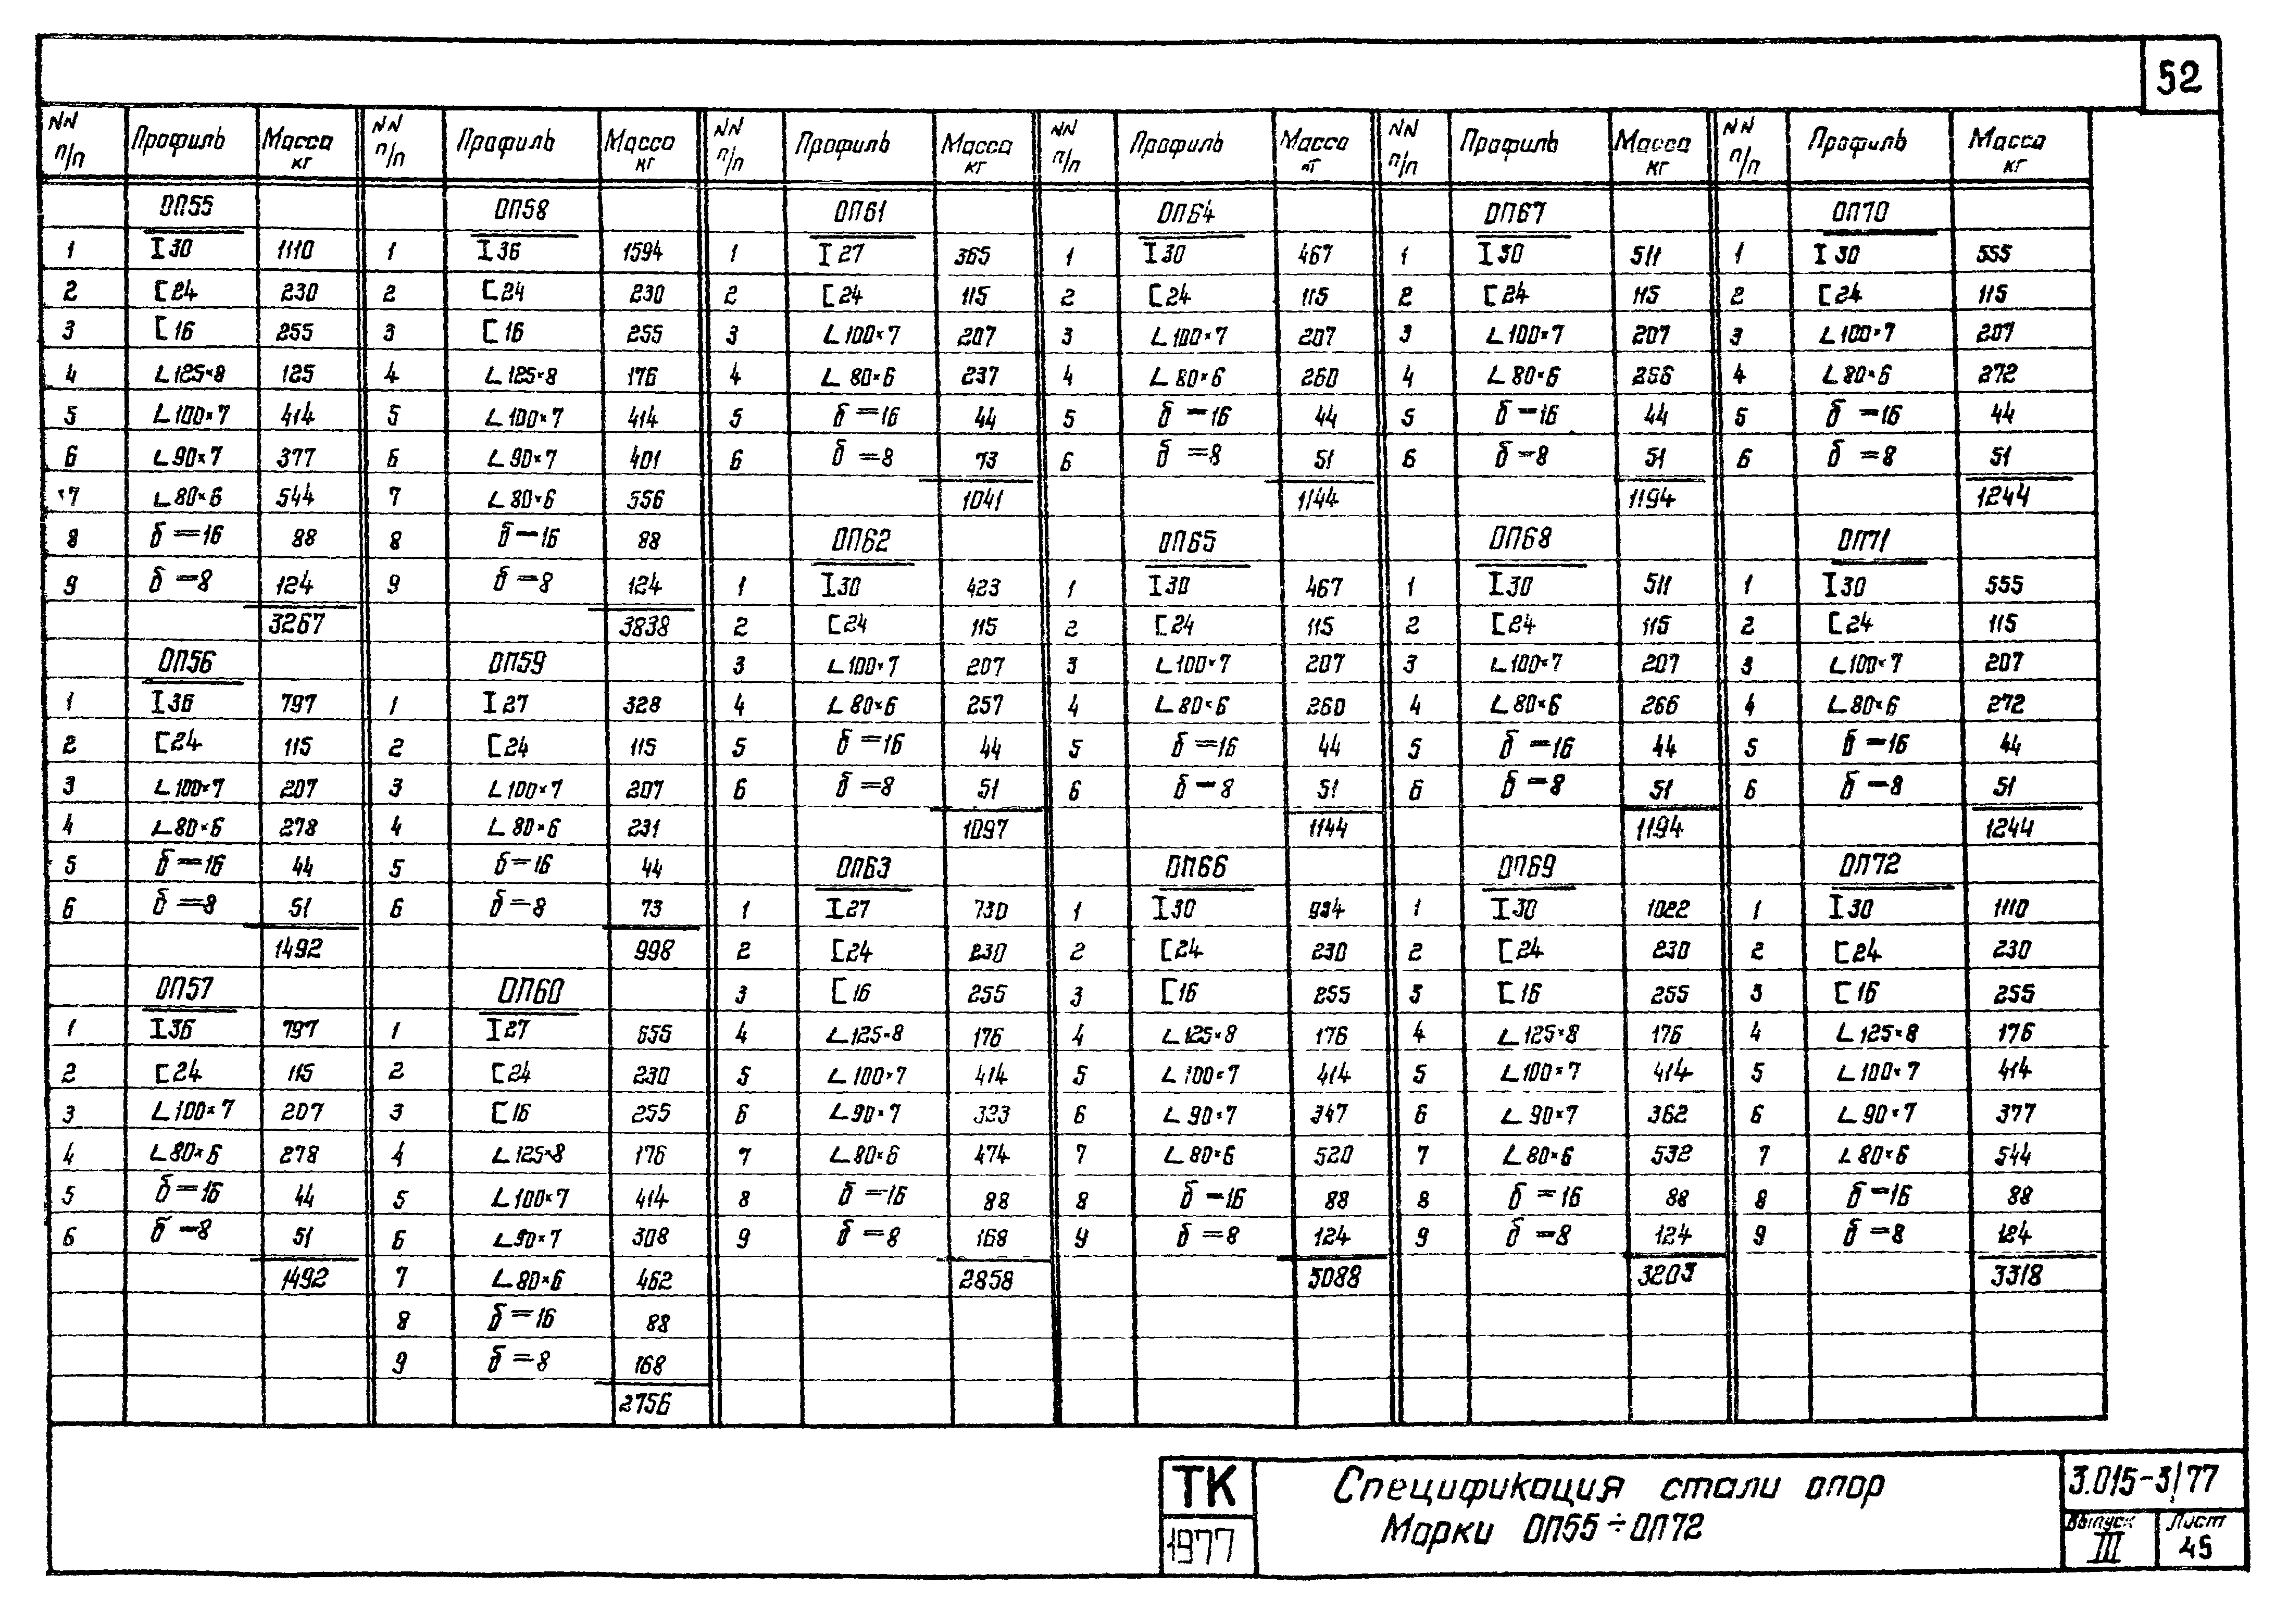 52
NN п/п Профиль Масса кг NN п/п Профиль Масса кг NN п/п Профиль Масса кг NN п/п Профиль Масса кг NN п/п Профиль Масса кг NN п/п Профиль Масса кг
ОП55
1 I30 1110
2 [24 230
3 [16 255
4 L125×8 125
5 L100×7 414
6 L90×7 377
7 L80×6 544
8 δ=16 88
9 δ=8 124
3267
ОП56
1 I36 797
2 [24 115
3 L100×7 207
4 L80×6 278
5 δ=16 44
6 δ=8 51
1492
ОП57
1 I36 797
2 [24 115
3 L100×7 207
4 L80×6 278
5 δ=16 44
6 δ=8 51
1492
ОП58
1 I36 1594
2 [24 230
3 [16 255
4 L125×8 176
5 L100×7 414
6 L90×7 401
7 L80×6 556
8 δ=16 88
9 δ=8 124
3838
ОП59
1 I27 328
2 [24 115
3 L100×7 207
4 L80×6 231
5 δ=16 44
6 δ=8 73
998
ОП60
1 I27 655
2 [24 230
3 [16 255
4 L125×8 176
5 L100×7 414
6 L90×7 308
7 L80×6 462
8 δ=16 88
9 δ=8 168
2756
ОП61
1 I27 365
2 [24 115
3 L100×7 207
4 L80×6 237
5 δ=16 44
6 δ=8 73
1041
ОП62
1 I30 423
2 [24 115
3 L100×7 207
4 L80×6 257
5 δ=16 44
6 δ=8 51
1097
ОП63
1 I27 730
2 [24 230
3 [16 255
4 L125×8 176
5 L100×7 414
6 L90×7 323
7 L80×6 474
8 δ=16 88
9 δ=8 168
2858
ОП64
1 I30 467
2 [24 115
3 L100×7 207
4 L80×6 260
5 δ=16 44
6 δ=8 51
1144
ОП65
1 I30 467
2 [24 115
3 L100×7 207
4 L80×6 260
5 δ=16 44
6 δ=8 51
1144
ОП66
1 I30 934
2 [24 230
3 [16 255
4 L125×8 176
5 L100×7 414
6 L90×7 347
7 L80×6 520
8 δ=16 88
9 δ=8 124
3088
ОП67
1 I30 511
2 [24 115
3 L100×7 207
4 L80×6 266
5 δ=16 44
6 δ=8 51
1194
ОП68
1 I30 511
2 [24 115
3 L100×7 207
4 L80×6 266
5 δ=16 44
6 δ=8 51
1194
ОП69
1 I30 1022
2 [24 230
3 [16 255
4 L125×8 176
5 L100×7 414
6 L90×7 362
7 L80×6 532
8 δ=16 88
9 δ=8 124
3203
ОП70
1 I30 555
2 [24 115
3 L100×7 207
4 L80×6 272
5 δ=16 44
6 δ=8 51
1244
ОП71
1 I30 555
2 [24 115
3 L100×7 207
4 L80×6 272
5 δ=16 44
6 δ=8 51
1244
ОП72
1 I30 1110
2 [24 230
3 [16 255
4 L125×8 176
5 L100×7 414
6 L90×7 377
7 L80×6 544
8 δ=16 88
9 δ=8 124
3318
ТК
1977
Спецификация стали опор
Марки ОП55÷ОП72
3.015-3/77
Выпуск III
Лист 45